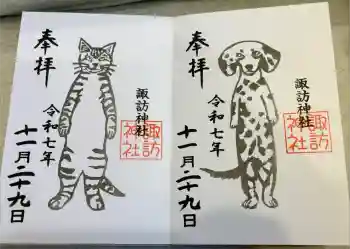 奉拝
諏訪神社
諏訪
神社
令和七年
十一月二十九日
奉拝
諏訪神社
諏訪
神社
令和七年
十一月二十九日